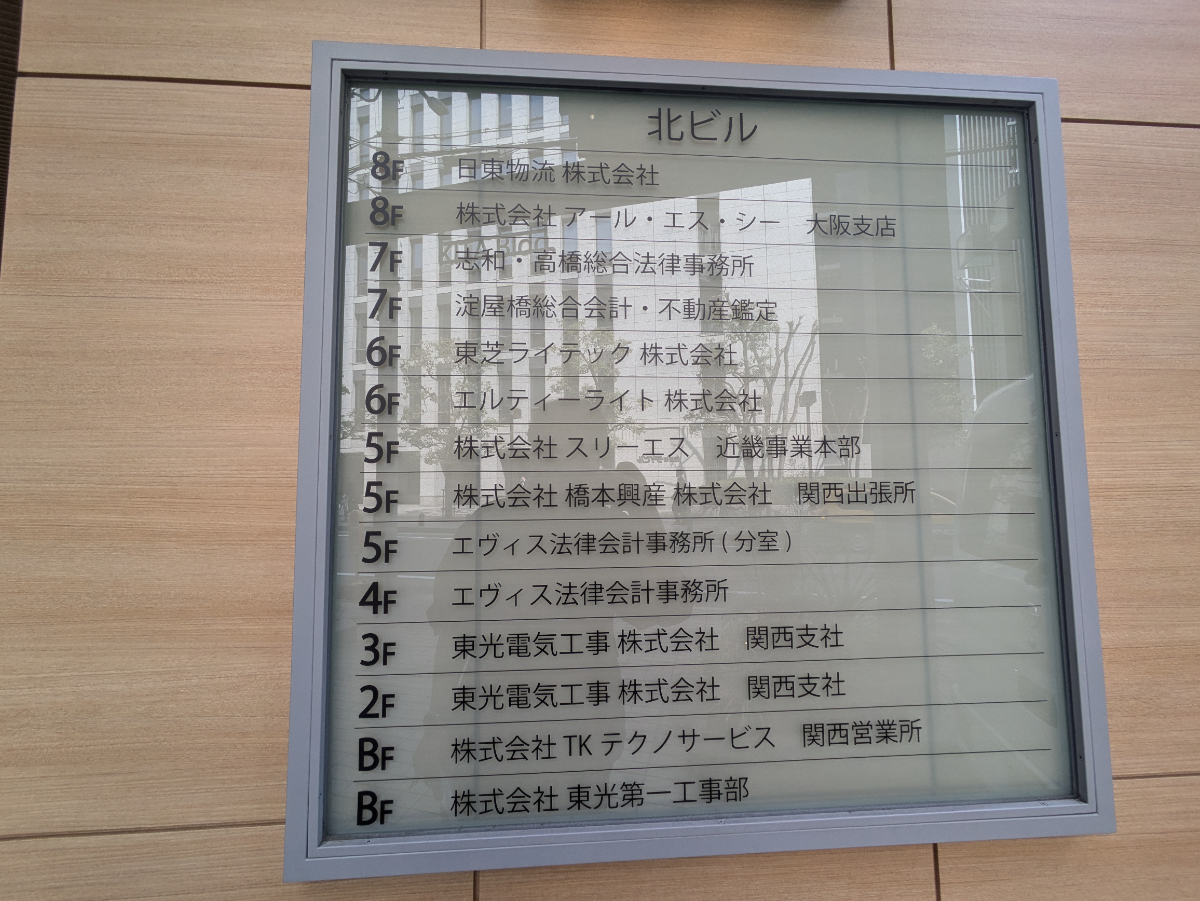 北ビル
8F 日東物流 株式会社
8F 株式会社 アール・エス・シー 大阪支店
7F 志和・高橋総合法律事務所
7F 淀屋橋総合会計・不動産鑑定
6F 東芝ライテック 株式会社
6F エルティーライト 株式会社
5F 株式会社 スリーエス 近畿事業本部
5F 株式会社 橋本興産 株式会社 関西出張所
5F エヴィス法律会計事務所(分室)
4F エヴィス法律会計事務所
3F 東光電気工事 株式会社 関西支社
2F 東光電気工事 株式会社 関西支社
BF 株式会社 TK テクノサービス 関西営業所
BF 株式会社 東光第一工事部